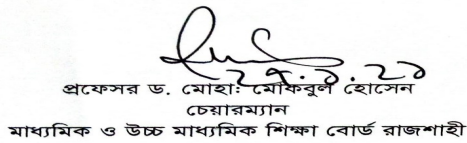 ২৭.১.২১
প্রফেসর ড. মোহাঃ মোকবুল হোসেন
চেয়ারম্যান
মাধ্যমিক ও উচ্চ মাধ্যমিক শিক্ষা বোর্ড রাজশাহী